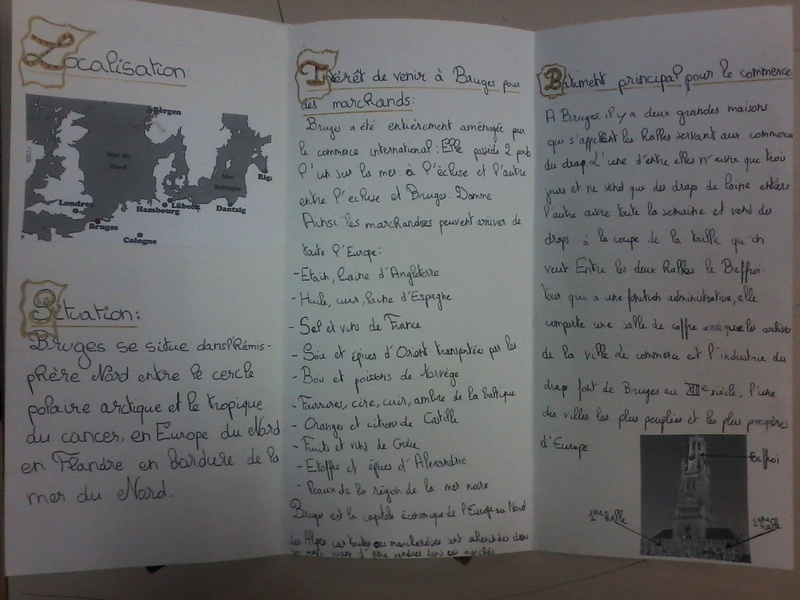 Localisation:
Bergen
Mer du
Nord
Mer
Baltique
Rig
Londres
Lübeck
Hambourg
Dantzig
Bruges
Cologne
Situation:
Bruges se situe dans l'Hémis-
phère Nord entre le cercle
polaire arctique et le tropique
du cancer, en Europe du Nord
en Flandre en bordure de la
mer du Nord.
Intérêt de venir à Bruges pour
des marchands:
Bruges a été entièrement aménagée pour
le commerce international: Elle possède 2 ports
l'un sur la mer: à l'écluse et l'autre
entre l'écluse et Bruges: Damme
Ainsi les marchandises peuvent arriver de
toute l'Europe:
- Etain, laine d'Angleterre
- Huile, cuir, laine d'Espagne
- Sel et vins de France
- Soie et épices d'Orient transportées par les
- Bois et poissons de Norvège
- Fourrures, cire, cuir, ambre de la baltique
- Oranges et citrons de Castille
- Fruits et vins de Grèce
- Etoffes et épices d'Alexandrie
- Peaux de la région de la mer noire
Bruges est la capitale économique de l'Europe du Nord
des Alpes car toutes ces marchandises sont acheminées dans
Bâtiment principal pour le commerce
A Bruges, il y a deux grandes maisons
qui s'appellent les halles servant aux commerce
du drap. L'une d'entre elles n'ouvre que trois
jours et ne vend que des drap de laine entiers
l'autre ouvre toute la semaine et vend des
draps à la coupe de la taille qu'on
veut Entre les deux halles le Beffroi
tour qui a une fonction administrative, elle
comporte une salle de coffre ainsi que les archives
de la ville Le commerce est l'industrie du
drap font de Bruges au XIIe siècle l'une
des villes les plus peuplées et les plus prospères
d'Europe
Beffroi
1ère halle
2ème halle